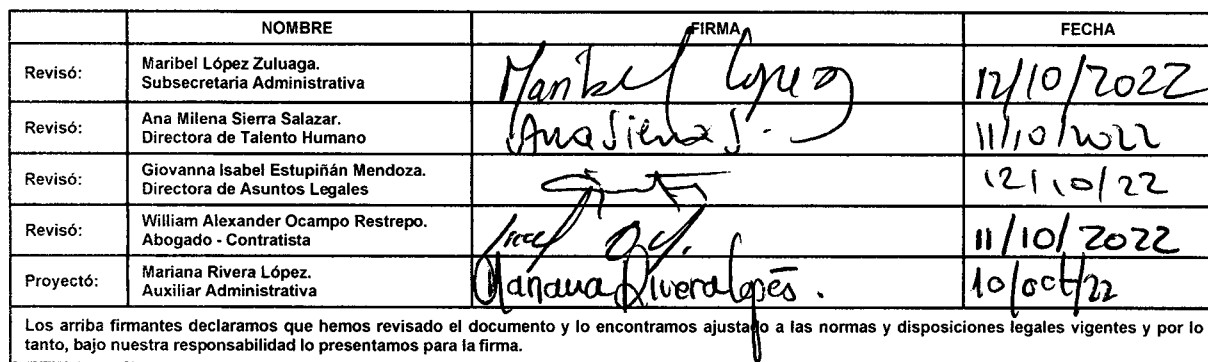 NOMBRE FIRMA FECHA
Revisó: Maribel López Zuluaga.
Subsecretaria Administrativa
Maribel López 12/10/2022
Revisó: Ana Milena Sierra Salazar.
Directora de Talento Humano
Ana Sierra S. 11/10/2022
Revisó: Giovanna Isabel Estupiñán Mendoza.
Directora de Asuntos Legales
12/10/22
Revisó: William Alexander Ocampo Restrepo.
Abogado - Contratista
11/10/2022
Proyectó: Mariana Rivera López.
Auxiliar Administrativa
Mariana Rivera López. 10/oct/22
Los arriba firmantes declaramos que hemos revisado el documento y lo encontramos ajustado a las normas y disposiciones legales vigentes y por lo
tanto, bajo nuestra responsabilidad lo presentamos para la firma.